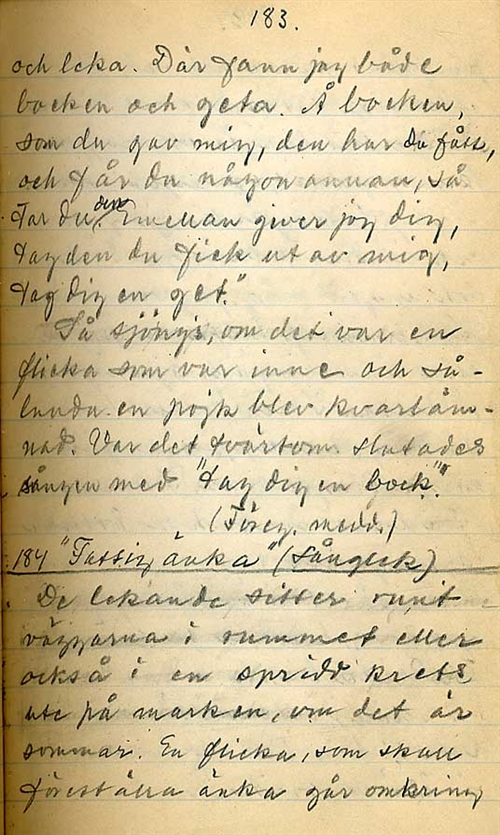 183.
och leka. Där fann jag både
bocken och geta. Å bocken,
som du gav mig, den har du fått,
och får du någon annan, så
Tar du den. Emellan giver jag dig,
tag den du fick utav mig,
tag dig en get."
Så sjöngs, om det var en
flicka som var inne och så-
lunda en pojk blev kvarläm-
nad. Var det tvärtom slutades
sången med "tag dig en bock."
(Föreg. medd.)
184 "Fattig änka" (Sånglek)
De lekande sitter runt
väggarna i rummet eller
också i en spridd krets
ute på marken, om det är
sommar. En flicka, som skall
föreställa änka går omkring